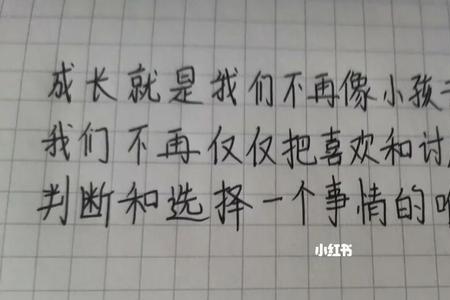 成长就是我们不再像小孩
我们不再仅仅把喜欢和讨
判断和选择一个事情的
小红书